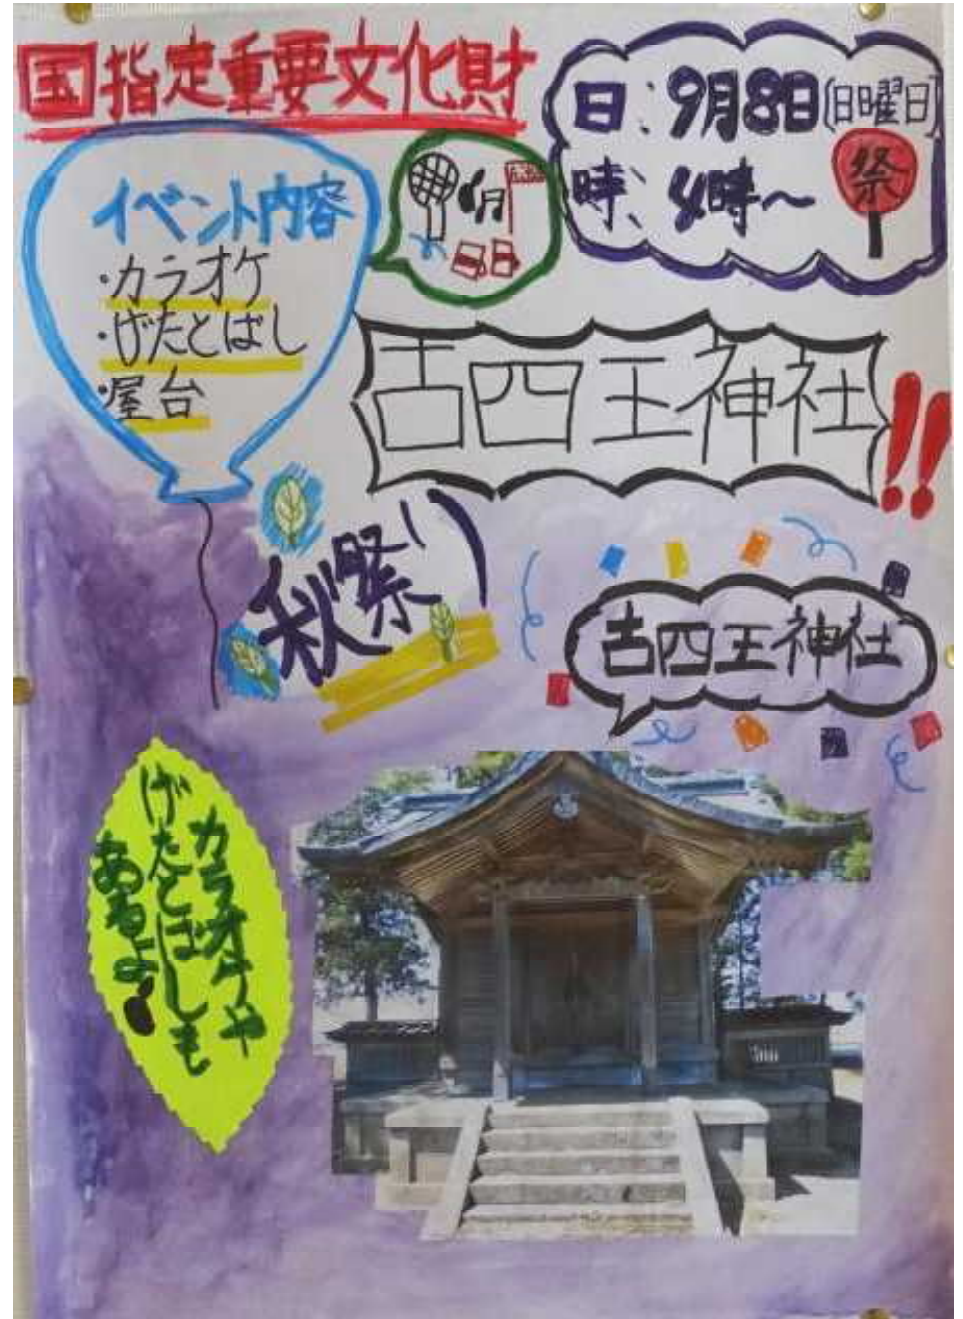 国指定重要文化財
日:9月8日(日曜日)
時:4時~
祭
イベント内容
・カラオケ
・げたとばし
・屋台
月
古四王神社!!
秋祭り
古四王神社
カラオケや
げたとばしも
あるよ!